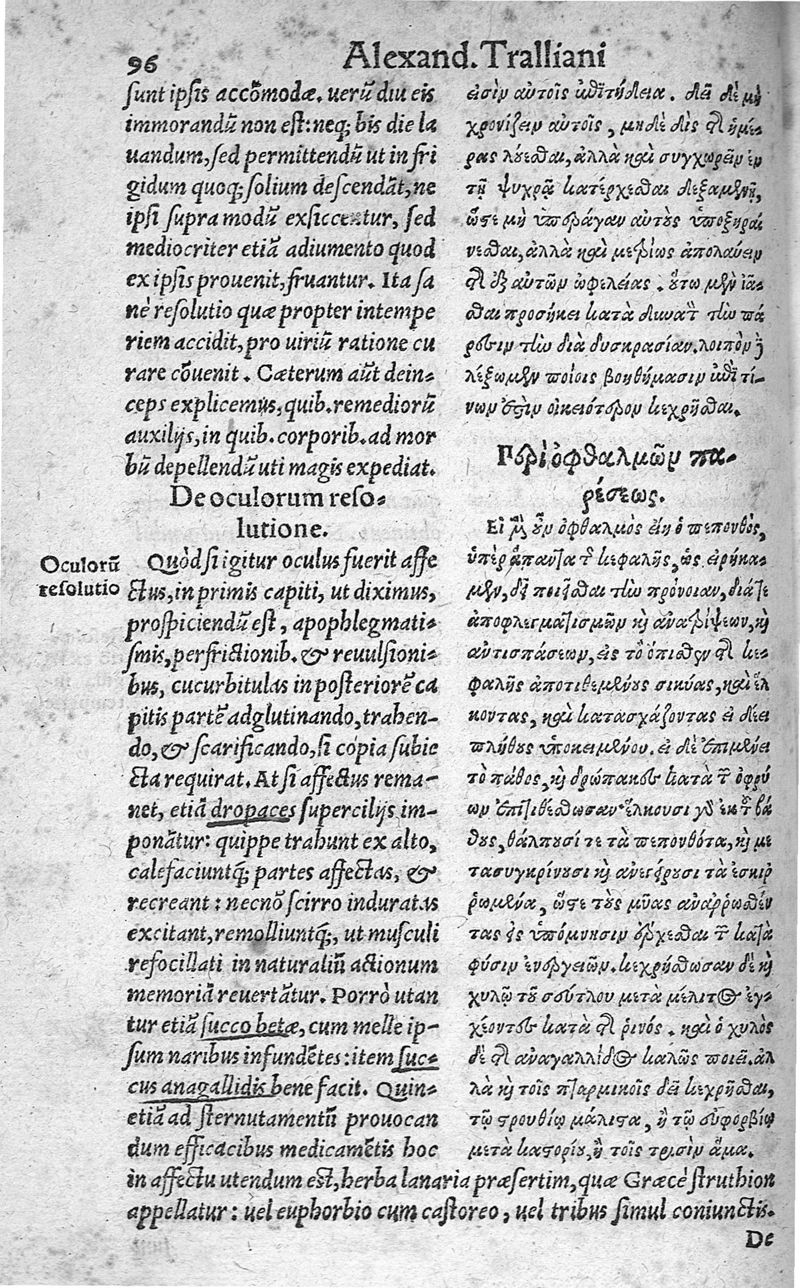 96
Alexand. Tralliani
sunt ipsis accõmodæ. uerũ diu eis
immorandũ non est: neq; bis die la
uandum, sed permittendũ ut in fri
gidum quoq; solium descendãt, ne
ipsi supra modũ exsiccentur, sed
mediocriter etiã adiumento quod
ex ipsis prouenit, fruantur. Ita sa
nè resolutio quæ propter intempe
riem accidit, pro uiriũ ratione cu
rare cõuenit. Cæterum aũt dein-
ceps explicemus, quib. remediorũ
auxilijs, in quib. corporib. ad mor
bũ depellendũ uti magis expediat.
De oculorum reso-
lutione.
Oculorũ
resolutio
Quòd si igitur oculus fuerit affe
ctus, in primis capiti, ut diximus,
prospiciendũ est, apophlegmati-
smis, perfrictionib. & reuulsioni-
bus, cucurbitulas in posteriorẽ ca
pitis partẽ adglutinando, trahen-
do, & scarificando, si copia subie
cta requirat. At si affectus rema-
net, etiã dropaces supercilijs im-
ponãtur: quippe trahunt ex alto,
calefaciuntq; partes affectas, &
recreant: necnõ scirro induratas
excitant, remolliuntq;, ut musculi
refocillati in naturaliũ actionum
memoriã reuertãtur. Porrò utan
tur etiã succo betæ, cum melle ip-
sum naribus infundẽtes: item suc-
cus anagallidis bene facit. Quin-
etiã ad sternutamentũ prouocan
dum efficacibus medicamẽtis hoc
in affectu utendum est, herba lanaria præsertim, quæ Græcè struthion
appellatur: uel euphorbio cum castoreo, uel tribus simul coniunctis.
De
εἰσὶν αὐτοῖς ἐπιτήδεια. δεῖ δὲ μὴ
χρονίζειν αὐτοῖς, μηδὲ δὶς τῆς ἡμέ-
ρας λούεσθαι, ἀλλὰ καὶ συγχωρεῖν ἐν
τῇ ψυχρᾷ κατέρχεσθαι δεξαμενῇ,
ὥστε μὴ ὑπεράγαν αὐτοὺς ὑποξηραί
νεσθαι, ἀλλὰ καὶ μετρίως ἀπολαύειν
τῆς ἐξ αὐτῶν ὠφελείας. οὕτω μὲν ἰᾶ-
σθαι προσήκει κατὰ δύναμιν τὴν πά
ρεσιν τὴν διὰ δυσκρασίαν. λοιπὸν δὲ
λέξωμεν ποίοις βοηθήμασιν ἐπὶ τί-
νων ἐστὶν οἰκειότερον κεχρῆσθαι.
Περὶ ὀφθαλμῶν πα-
ρέσεως.
Εἰ μὲν οὖν ὀφθαλμὸς εἴη ὁ πεπονθὼς,
ὑπὲρ ἅπαντα τῆς κεφαλῆς, ὡς εἰρήκα-
μεν, δεῖ ποιεῖσθαι τὴν πρόνοιαν, διά τε
ἀποφλεγματισμῶν καὶ ἀνατρίψεων, καὶ
ἀντισπάσεων, εἰς τὸ ὄπισθεν τῆς κε-
φαλῆς ἀποτιθεμένους σικύας, καὶ ἕλ
κοντας, καὶ κατασχάζοντας εἰ δέει
πλῆθος ὑποκειμένου. εἰ δὲ ἐπιμένει
τὸ πάθος, καὶ δρώπακες κατὰ τῶν ὀφρύ
ων ἐπιτιθέσθωσαν ἕλκουσι γὰρ ἐκ τοῦ βά
θους, θάλπουσί τε τὰ πεπονθότα, καὶ με
τασυγκρίνουσι καὶ ἀνεγείρουσι τὰ ἐσκιρ
ρωμένα, ὥστε τοὺς μύας ἀναρρωσθέν
τας εἰς ὑπόμνησιν ἔρχεσθαι τῶν κατὰ
φύσιν ἐνεργειῶν. κεχρήσθωσαν δὲ καὶ
χυλῷ τοῦ σεύτλου μετὰ μέλιτος ἐγ-
χέοντες κατὰ τῆς ῥινός. καὶ ὁ χυλὸς
δὲ τῆς ἀναγαλλίδος καλῶς ποιεῖ. ἀλ
λὰ καὶ τοῖς πταρμικοῖς δεῖ κεχρῆσθαι,
τῷ στρουθίῳ μάλιστα, ἢ τῷ εὐφορβίῳ
μετὰ καστορίου, ἢ τοῖς τρισὶν ἅμα.